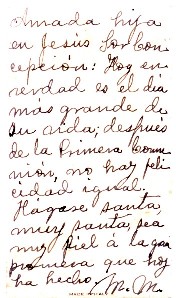 Amada hija
en Jesús Sor Con
cepción: Hoy en
verdad es el dia
más grande de
su vida; después
de la Primera Comu
nión, no hay feli
cidad igual.
Hágase santa,
muy santa, sea
muy fiel á la
promesa que hoy
ha hecho. M. M.